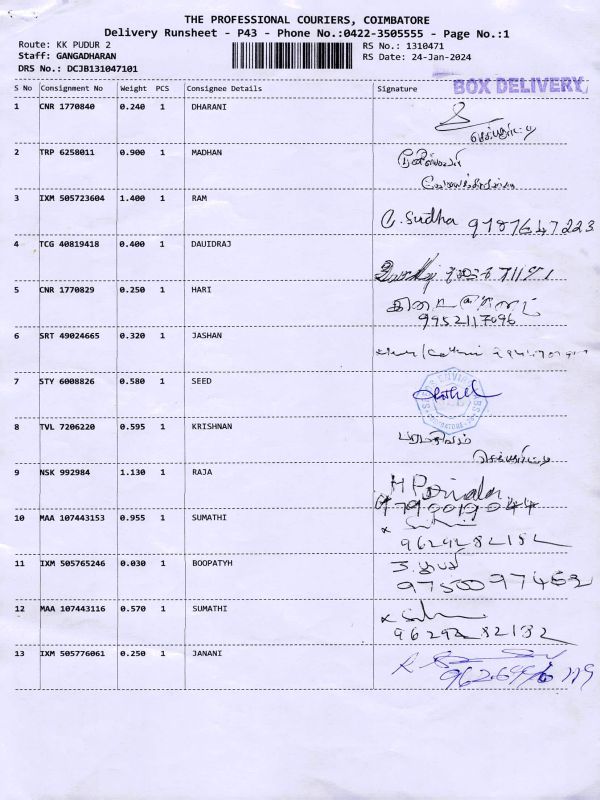 THE PROFESSIONAL COURIERS, COIMBATORE
Delivery Runsheet - P43 - Phone No.:0422-3505555 - Page No.:1
Route: KK PUDUR 2 RS No.: 1310471
Staff: GANGADHARAN RS Date: 24-Jan-2024
DRS No.: DCJB131047101
BOX DELIVERY
S No Consignment No Weight PCS Consignee Details Signature
1 CNR 1770840 0.240 1 DHARANI
2 TRP 6258011 0.900 1 MADHAN
3 IXM 505723604 1.400 1 RAM
C. Sudha 9787647223
4 TCG 40819418 0.400 1 DAUIDRAJ
5 CNR 1770829 0.250 1 HARI
9952117096
6 SRT 49024665 0.320 1 JASHAN
7 STY 6008826 0.580 1 SEED
8 TVL 7206220 0.595 1 KRISHNAN
9 NSK 992984 1.130 1 RAJA
10 MAA 107443153 0.955 1 SUMATHI
9629282132
11 IXM 505765246 0.030 1 BOOPATYH
12 MAA 107443116 0.570 1 SUMATHI
9629282132
13 IXM 505776061 0.250 1 JANANI